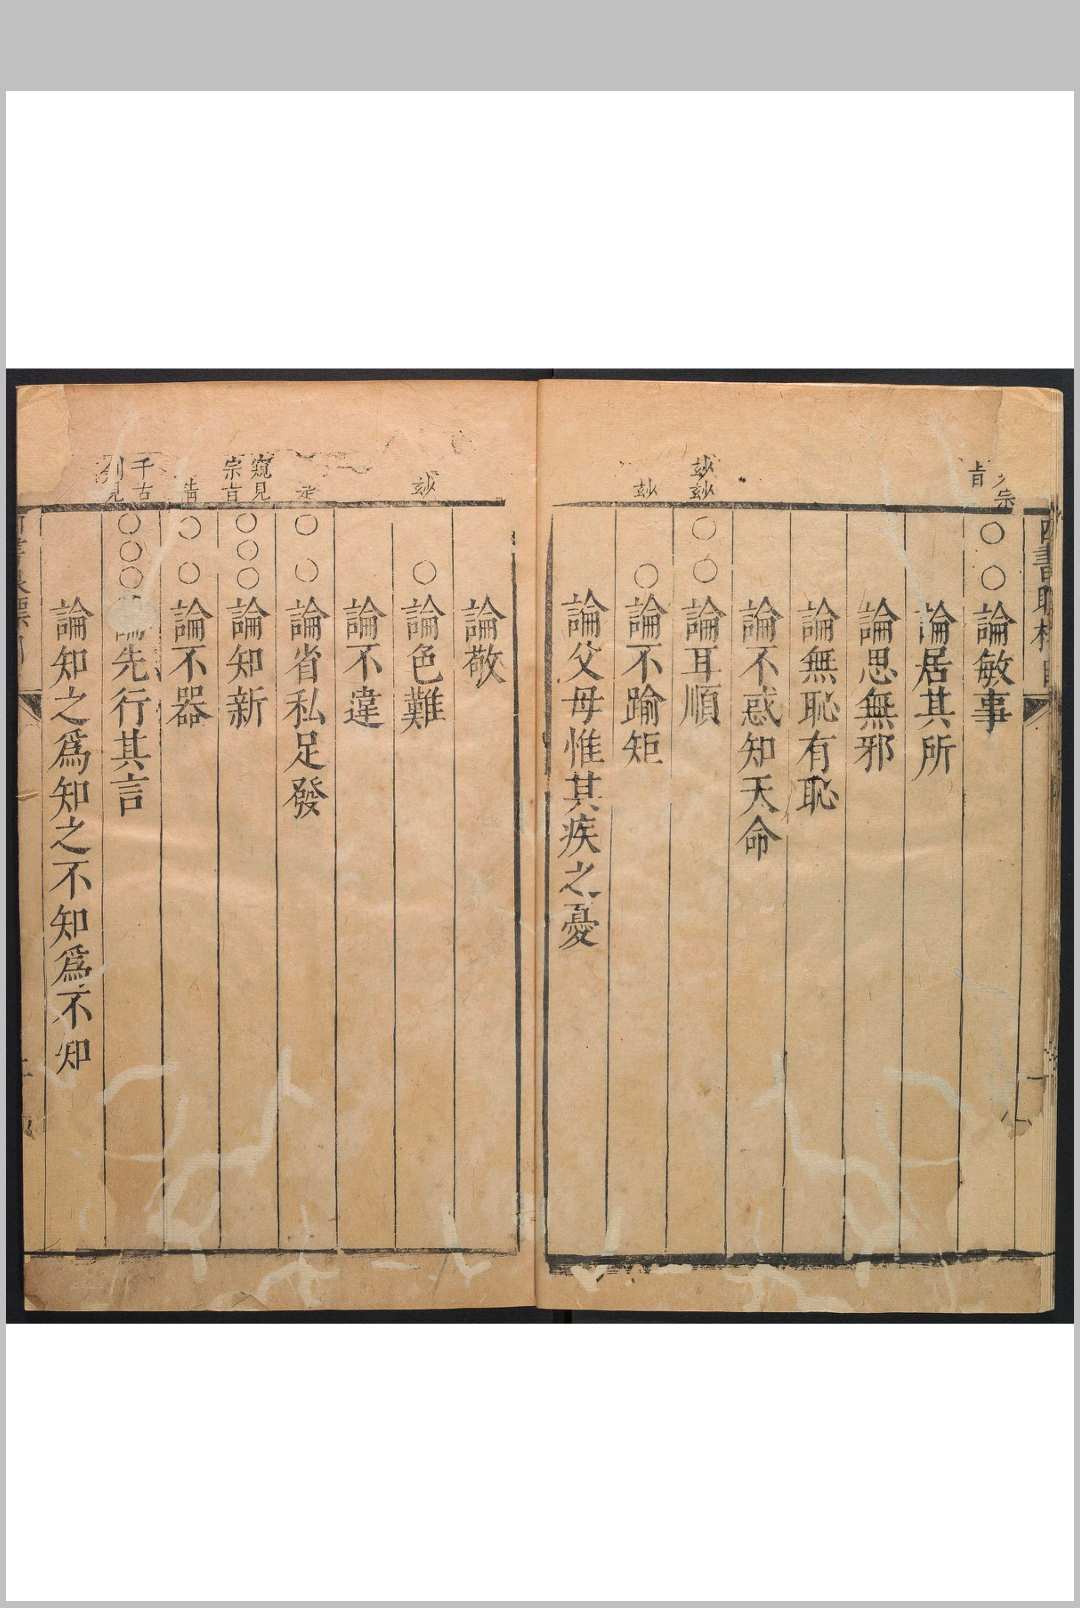 宗
旨
○○論敏事
論居其所
論思無邪
論無恥有恥
論不惑知天命
玅玅
○○論耳順
玅
○論不踰矩
論父母惟其疾之憂
論敬
玅
○論色難
論不違
○○論省私足發
窺見
宗旨
○○○論知新
○○論不器
千古
見
○○○論先行其言
論知之爲知之不知爲不知